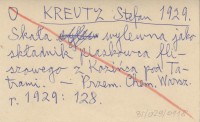 O KREUTZ Stefan 1929.
Skała wylewna jako
składnik piaskowca fli-
szowego z Kośnica pod Ta-
trami. - Przem. Chem. Warsz.
r. 1929: 128.